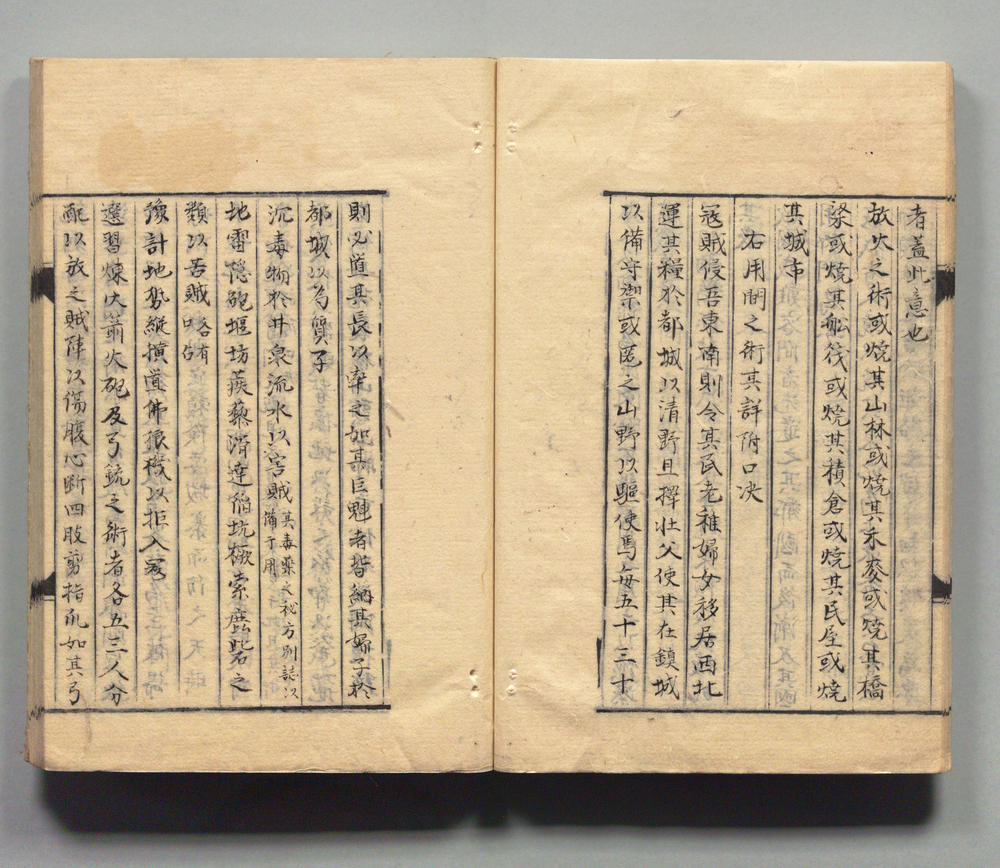 者蓋此意也
放火之術或燒其山林或燒其禾麥或燒其橋
梁或燒其船筏或燒其積倉或燒其民屋或燒
其城市
右用間之術其詳附口決
冦賊侵吾東南則令其民老稚婦女移居西北
運其糧於都城以清野且擇壯父使其在鎮城
以備守禦或匿之山野以驅使焉每五十三十
則必置其長以牽之如其巨魁者皆納其婦子於
都城以爲質子
沉毒物於井泉流水以害賊其毒藥之秘方別誌以備于用
地雷隱砲堰坊蒺藜滑達陷坑橛索鹿砦之
類以苦賊各有口占
豫計地勢縱横置佛狼機以拒入冦
選習煉火箭火砲及弓銃之術者各五三人分
配以放之賊陣以傷腹心斷四肢剪指爪如其弓